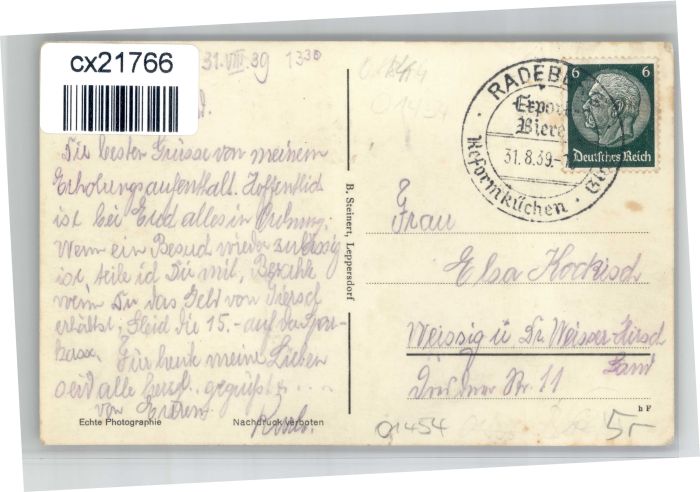 cx21766
31.VIII.39 13³⁰
Die besten Grüsse von meinem
Erholungsaufenthalt. Hoffentlich
ist bei Euch alles in Ordnung.
Wenn ein Besuch wieder zulässig
ist, teile ich Dir mit,
wenn Du das Geld von
erhältst, die 15.- auf
kasse. Für heute meine Lieben
seid alle herzl. gegrüßt
von Eurem
Echte Photographie
Nachdruck verboten
B. Steinert, Leppersdorf
RADEBE
Export
Biere
31.8.39-1
Reformküchen
6 6
Deutsches Reich
Frau
Elsa Kockisch
Weissig ü Dr. Weisser-Hirsch
Land
Dresdner Str. 11
h F
01454
5-